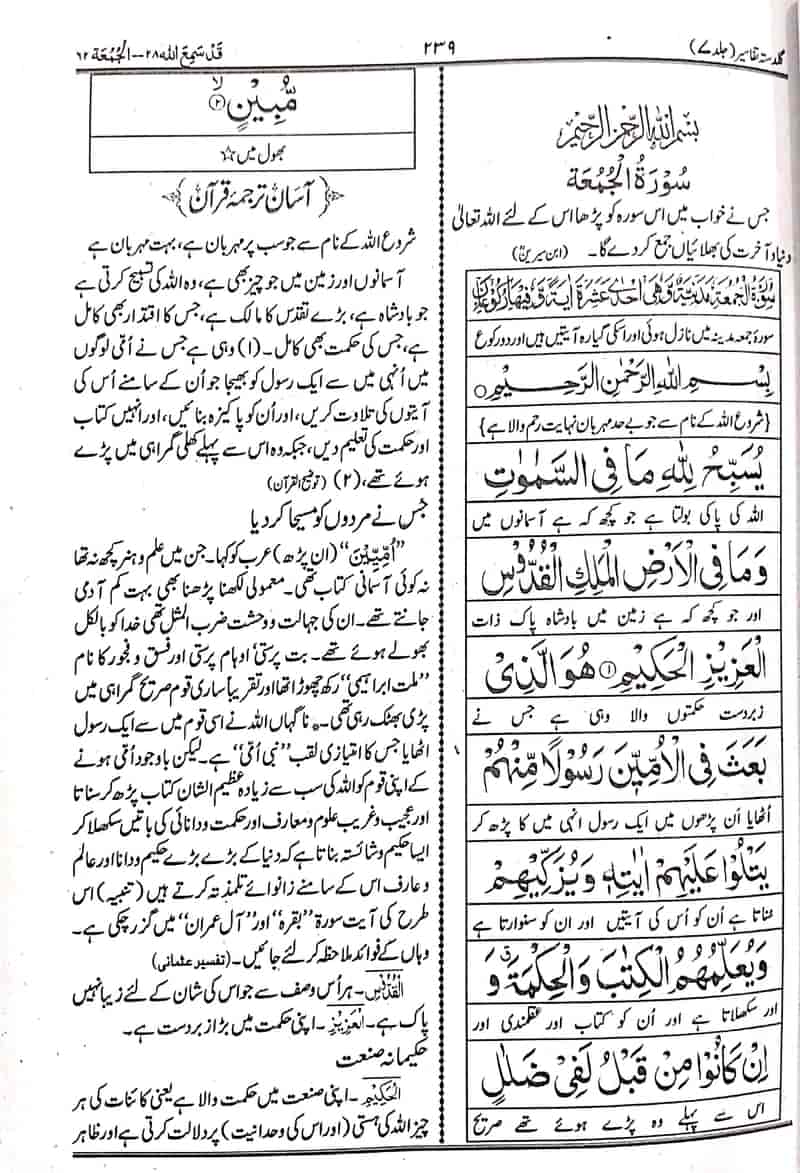 گلدستہ تفاسیر (جلد ۷)
۲۳۹
قَدْ سَمِعَ اللہ ۲۸ — الْجُمُعَة ۶۲
بسم الله الرحمن الرحيم
سُوْرَةُ الْجُمُعَة
جس نے خواب میں اس سورہ کو پڑھا اس کے لئے اللہ تعالیٰ
دنیا و آخرت کی بھلائیاں جمع کر دے گا۔ (ابن سیرینؒ)
سُوْرَةُ الْجُمُعَةِ مَدَنِيَّةٌ وَّهِيَ اِحْدٰى عَشَرَةَ اٰيَةً وَّفِيْهَا رُكُوْعَانِ
سورۂ جمعہ مدینہ میں نازل ہوئی اور اسکی گیارہ آیتیں ہیں اور دو رکوع
بِسْمِ اللهِ الرَّحْمٰنِ الرَّحِيْمِ
{شروع اللہ کے نام سے جو بے حد مہربان نہایت رحم والا ہے}
يُسَبِّحُ لِلّٰهِ مَا فِي السَّمٰوٰتِ
اللہ کی پاکی بولتا ہے جو کچھ کہ ہے آسمانوں میں
وَمَا فِي الْاَرْضِ الْمَلِكِ الْقُدُّوْسِ
اور جو کچھ کہ ہے زمین میں بادشاہ پاک ذات
الْعَزِيْزِ الْحَكِيْمِ ۝۱ هُوَ الَّذِيْ
زبردست حکمتوں والا وہی ہے جس نے
بَعَثَ فِي الْاُمِّيّٖنَ رَسُوْلًا مِّنْهُمْ
اُٹھایا اَن پڑھوں میں ایک رسول انہی میں کا پڑھ کر
يَتْلُوْا عَلَيْهِمْ اٰيٰتِهٖ وَيُزَكِّيْهِمْ
سُناتا ہے اُن کو اُس کی آیتیں اور ان کو سنوارتا ہے
وَيُعَلِّمُهُمُ الْكِتٰبَ وَالْحِكْمَةَ ۗ وَ
اور سکھلاتا ہے اور اُن کو کتاب اور عقلمندی اور
اِنْ كَانُوْا مِنْ قَبْلُ لَفِيْ ضَلٰلٍ
اس سے پہلے وہ پڑے ہوئے تھے صریح
مُّبِيْنٍ ۝۲
بھول میں ☆
آسان ترجمۂ قرآن
شروع اللہ کے نام سے جو سب پر مہربان ہے، بہت مہربان ہے
آسمانوں اور زمین میں جو چیز بھی ہے، وہ اللہ کی تسبیح کرتی ہے
جو بادشاہ ہے، بڑے تقدس کا مالک ہے، جس کا اقتدار بھی کامل
ہے، جس کی حکمت بھی کامل۔ (۱) وہی ہے جس نے اُمّی لوگوں
میں اُنہی میں سے ایک رسول کو بھیجا جو اُن کے سامنے اُس کی
آیتوں کی تلاوت کریں، اور اُن کو پاکیزہ بنائیں، اور انہیں کتاب
اور حکمت کی تعلیم دیں، جبکہ وہ اس سے پہلے کھلی گمراہی میں پڑے
ہوئے تھے، (۲) (توضیح القرآن)
جس نے مردوں کو مسیحا کر دیا
”اُمِّیّٖنَ“ (اَن پڑھ) عرب کو کہا۔ جن میں علم و ہنر کچھ نہ تھا
نہ کوئی آسمانی کتاب تھی۔ معمولی لکھنا پڑھنا بھی بہت کم آدمی
جانتے تھے۔ ان کی جہالت و وحشت ضرب المثل تھی خدا کو بالکل
بھولے ہوئے تھے۔ بت پرستی اوہام پرستی اور فسق و فجور کا نام
”ملت ابراہیمی“ رکھ چھوڑا تھا اور تقریباً ساری قوم صریح گمراہی میں
پڑی بھٹک رہی تھی۔ ناگہاں اللہ نے اسی قوم میں سے ایک رسول
اٹھایا جس کا امتیازی لقب ”نبی اُمّی“ ہے۔ لیکن باوجود اُمّی ہونے
کے اپنی قوم کو اللہ کی سب سے زیادہ عظیم الشان کتاب پڑھ کر سناتا
اور عجیب و غریب علوم و معارف اور حکمت و دانائی کی باتیں سکھلا کر
ایسا حکیم و شائستہ بناتا ہے کہ دنیا کے بڑے بڑے حکیم و دانا اور عالم
و عارف اس کے سامنے زانوائے تلمذ تہ کرتے ہیں (تنبیہ) اس
طرح کی آیت سورۃ ”بقرہ“ اور ”آل عمران“ میں گزر چکی ہے۔
وہاں کے فوائد ملاحظہ کر لئے جائیں۔ (تفسیر عثمانی)
الْقُدُّوْسِ۔ ہر اُس وصف سے جو اس کی شان کے لئے زیبا نہیں
پاک ہے۔ الْعَزِيْزِ۔ اپنی حکمت میں بڑا زبردست ہے۔
حکیمانہ صنعت
الْحَكِيْمِ۔ اپنی صنعت میں حکمت والا ہے یعنی کائنات کی ہر
چیز اللہ کی ہستی (اور اس کی وحدانیت) پر دلالت کرتی ہے اور ظاہر